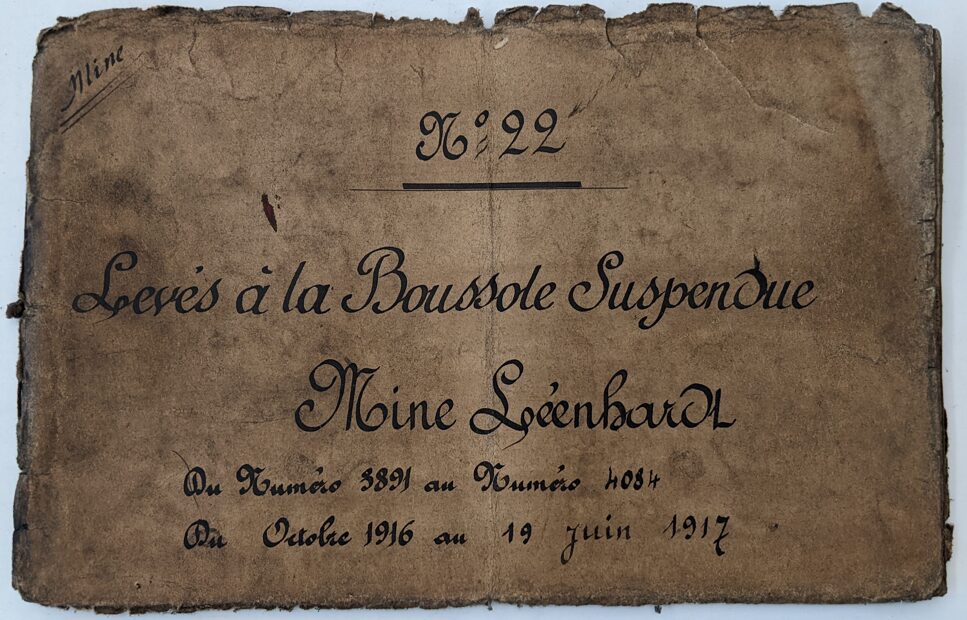 Mine
N° 22
Levés à la Boussole Suspendue
Mine Léenhardt
Du Numéro 3891 au Numéro 4084
Du Octobre 1916 au 19 juin 1917